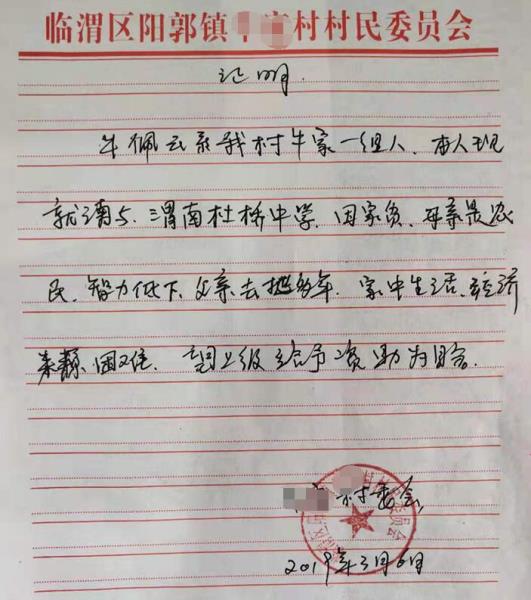 临渭区阳郭镇村村民委员会
证明.
牛佩云系我村牛家一组人、本人现
就读与、渭南杜桥中学、因家贫、母亲是农
民、智力低下、父亲去世多年、家中生活、经济
来源、困难、望上级给予资助为盼.
村委会
2019年3月6日